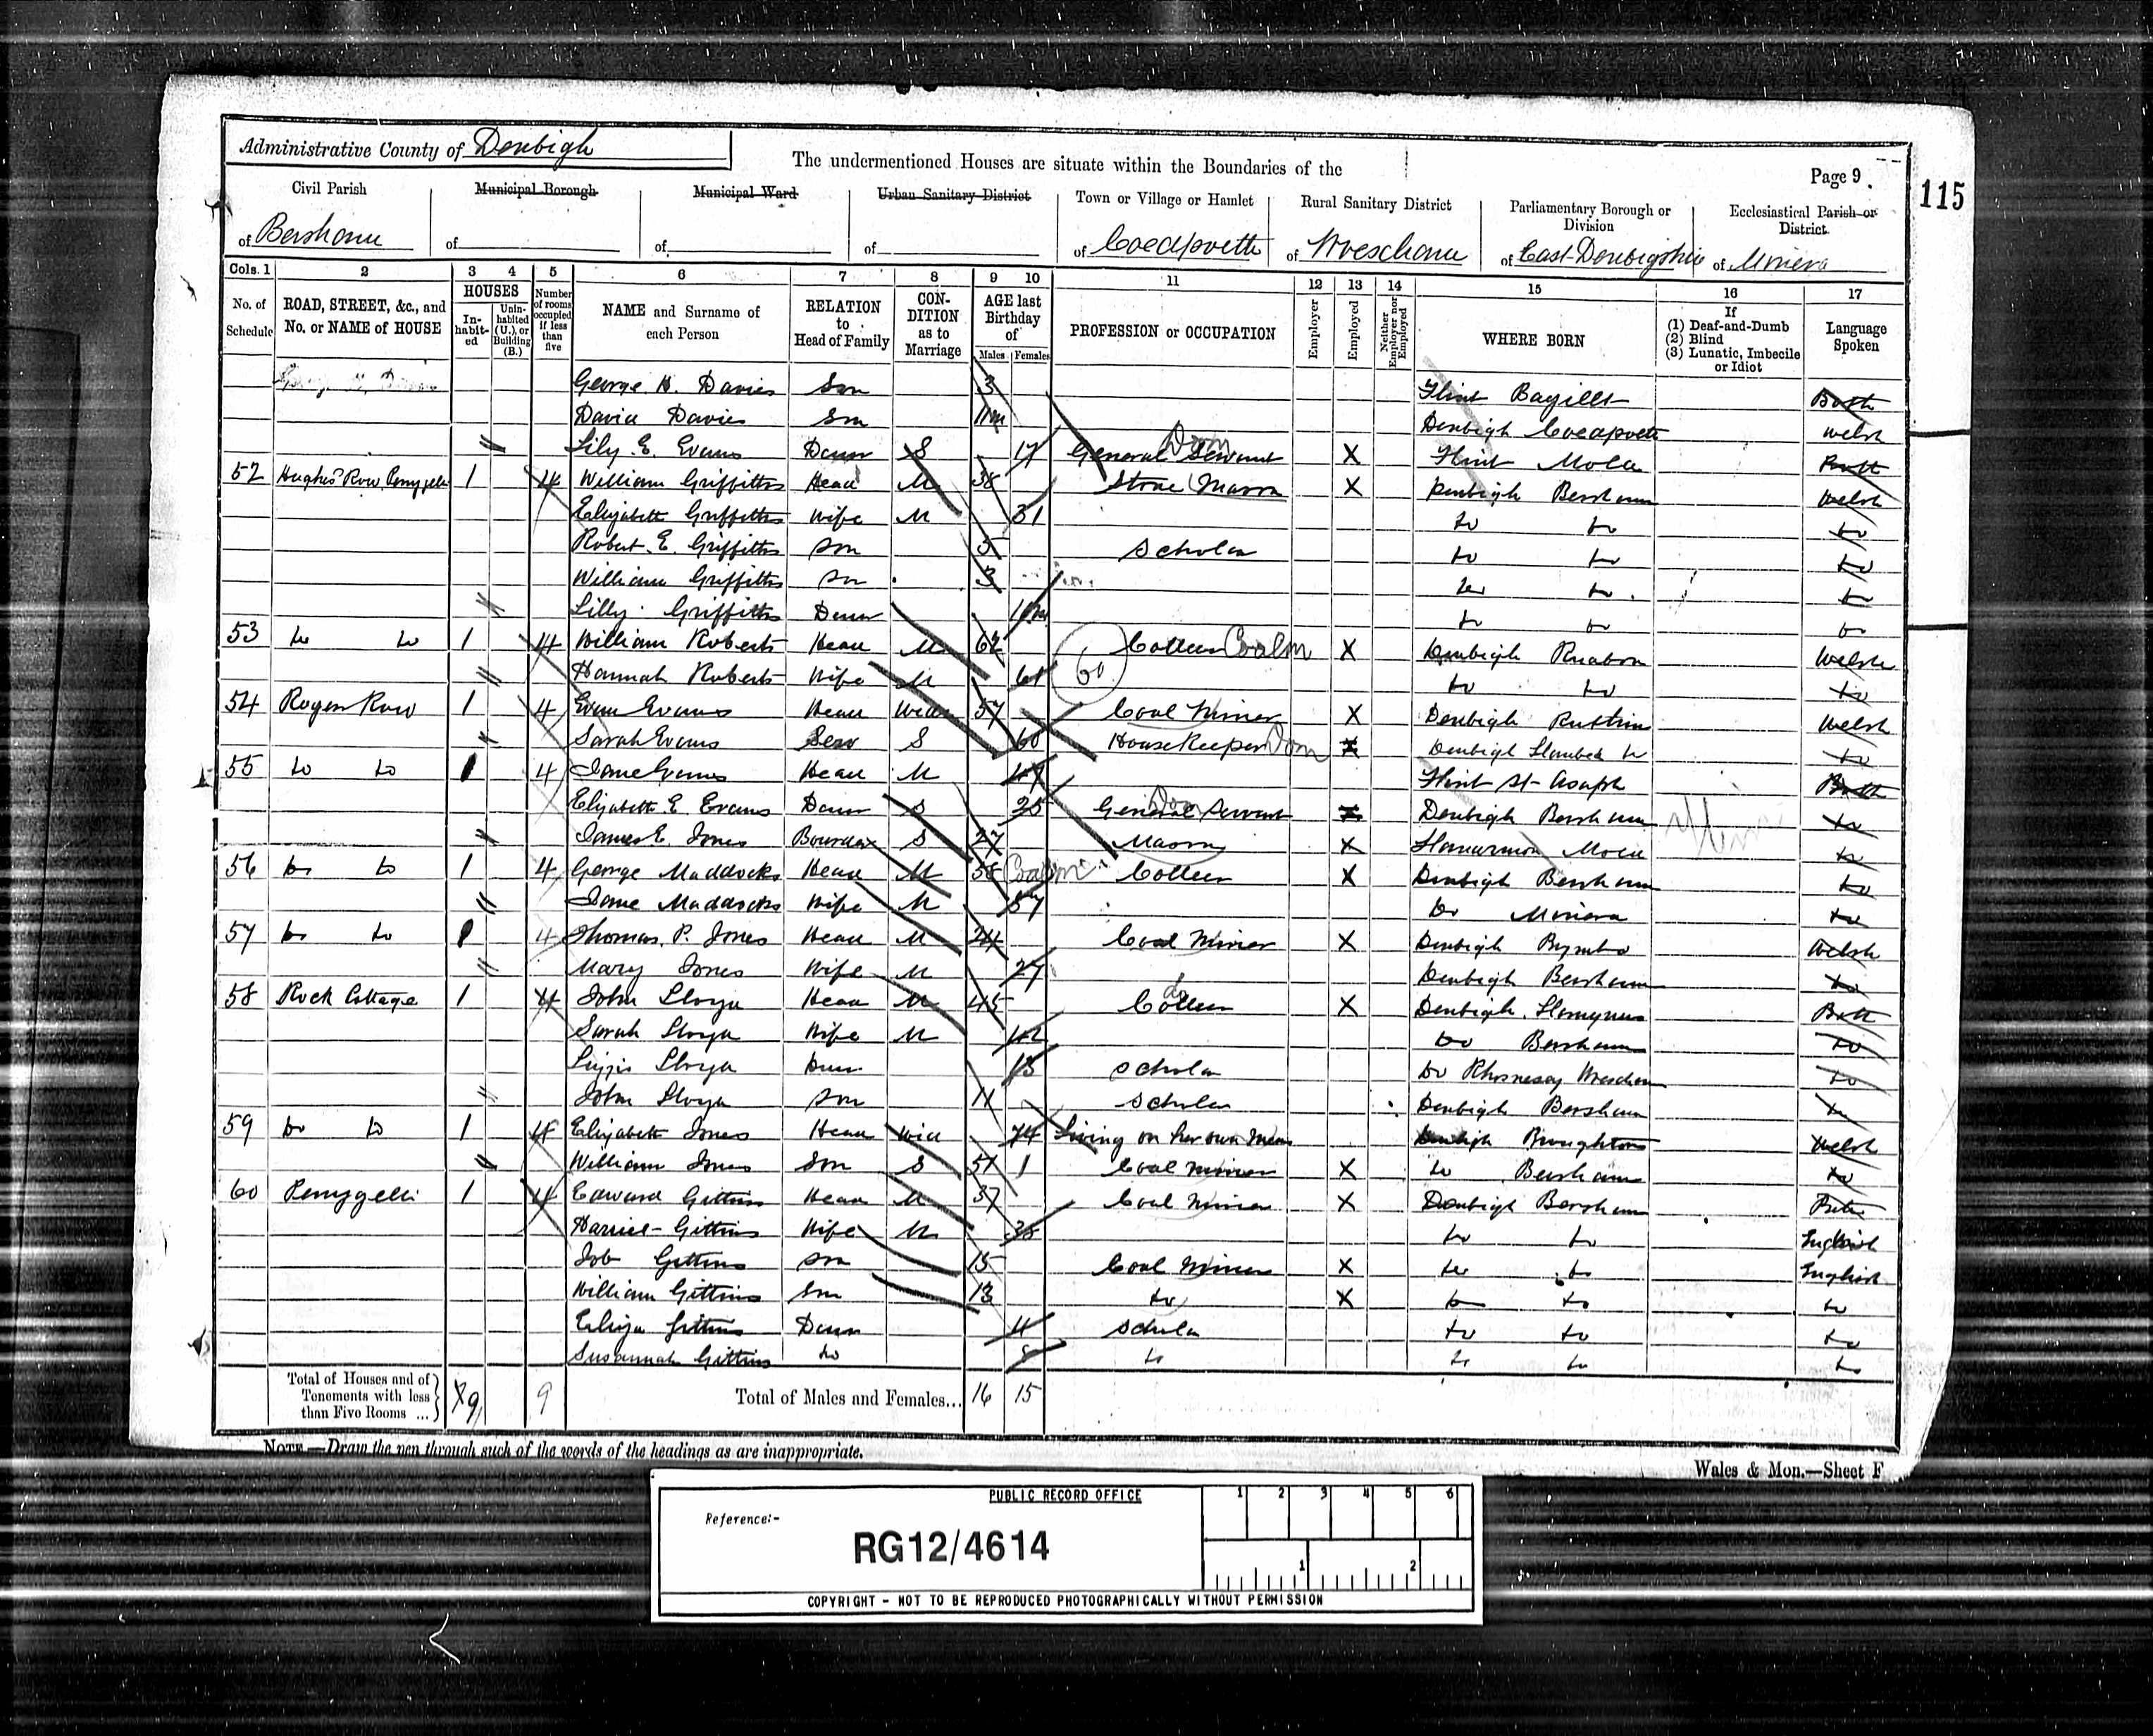 Administrative County of Denbigh
The undermentioned Houses are situate within the Boundaries of the
Page 9.
115
Civil Parish
Municipal Borough
Municipal Ward
Urban Sanitary District
Town or Village or Hamlet
Rural Sanitary District
Parliamentary Borough or Division
Ecclesiastical Parish or District
of Bersham of of of of Coedpoeth of Wrexham of East Denbigshire of Minera
Cols. 1 2 3 4 5 6 7 8 9 10 11 12 13 14 15 16 17
No. of Schedule
ROAD, STREET, &c., and No. or NAME of HOUSE
HOUSES
In-habit-ed
Unin-habited (U.), or Building (B.)
Number of rooms occupied if less than five
NAME and Surname of each Person
RELATION to Head of Family
CON-DITION as to Marriage
AGE last Birthday of
Males Females
PROFESSION or OCCUPATION
Employer
Employed
Neither Employer nor Employed
WHERE BORN
If (1) Deaf-and-Dumb (2) Blind (3) Lunatic, Imbecile or Idiot
Language Spoken
George H. Davies Son 3 Flint Bagillt Both
David Davies Son 11m Denbigh Coedpoeth Welsh
Lily E. Evans Daur S 17 General Servant Dom X Flint Mold Both
52 Hughes' Row, 1 4 William Griffiths Head M 38 Stone Mason X Denbigh Bersham Welsh
Elizabeth Griffiths Wife M 31 do do do
Robert E. Griffiths Son 5 Scholar do do do
William Griffiths Son 3 do do do
Lilly Griffiths Daur do do do
53 do do 1 4 William Roberts Head M 62 Collier Coalm X Denbigh Ruabon Welsh
Hannah Roberts Wife M 61 60 do do do
54 Rogers Row 1 4 Evan Evans Head Wid 57 Coal Miner X Denbigh Welsh
Sarah Evans Serv S 60 Housekeeper Dom X Denbigh do
55 do do 1 4 Jane Evans Head M Flint St Asaph Both
Elizabeth E. Evans Daur S 25 General Servant Dom X Denbigh Bersham do
James E. Jones Boarder S 27 Mason X Mold do
56 do do 1 4 George Maddocks Head M 58 Coalm Collier X Denbigh Bersham do
Jane Maddocks Wife M 57 do Minera do
57 do do 1 4 Thomas P. Jones Head M 24 Coal Miner X Denbigh Brymbo Welsh
Mary Jones Wife M 27 Denbigh Bersham do
58 Rock Cottage 1 4 John Lloyd Head M 45 Collier do X Denbigh Both
Sarah Lloyd Wife M 42 do Bersham do
Lizzie Lloyd Daur 13 Scholar do Wrexham do
John Lloyd Son 11 Scholar Denbigh Bersham do
59 do do 1 4 Elizabeth Jones Head Wid 74 Living on her own Means Denbigh Broughton Welsh
William Jones Son S 51 Coal Miner X do Bersham do
60 Penygelli 1 4 Edward Gittins Head M 37 Coal Miner X Denbigh Bersham Both
Harriet Gittins Wife M 38 do do English
Job Gittins Son 15 Coal Miner X do do English
William Gittins Son 13 do X do do do
Eliza Gittins Daur 11 Scholar do do do
Susannah Gittins do 8 do do do do
Total of Houses and of Tenements with less than Five Rooms ... 9 9 Total of Males and Females... 16 15
NOTE.—Draw the pen through such of the words of the headings as are inappropriate.
Wales & Mon.—Sheet F
PUBLIC RECORD OFFICE
1 2 3 4 5 6
Reference:-
RG12/4614
1 2
COPYRIGHT - NOT TO BE REPRODUCED PHOTOGRAPHICALLY WITHOUT PERMISSION